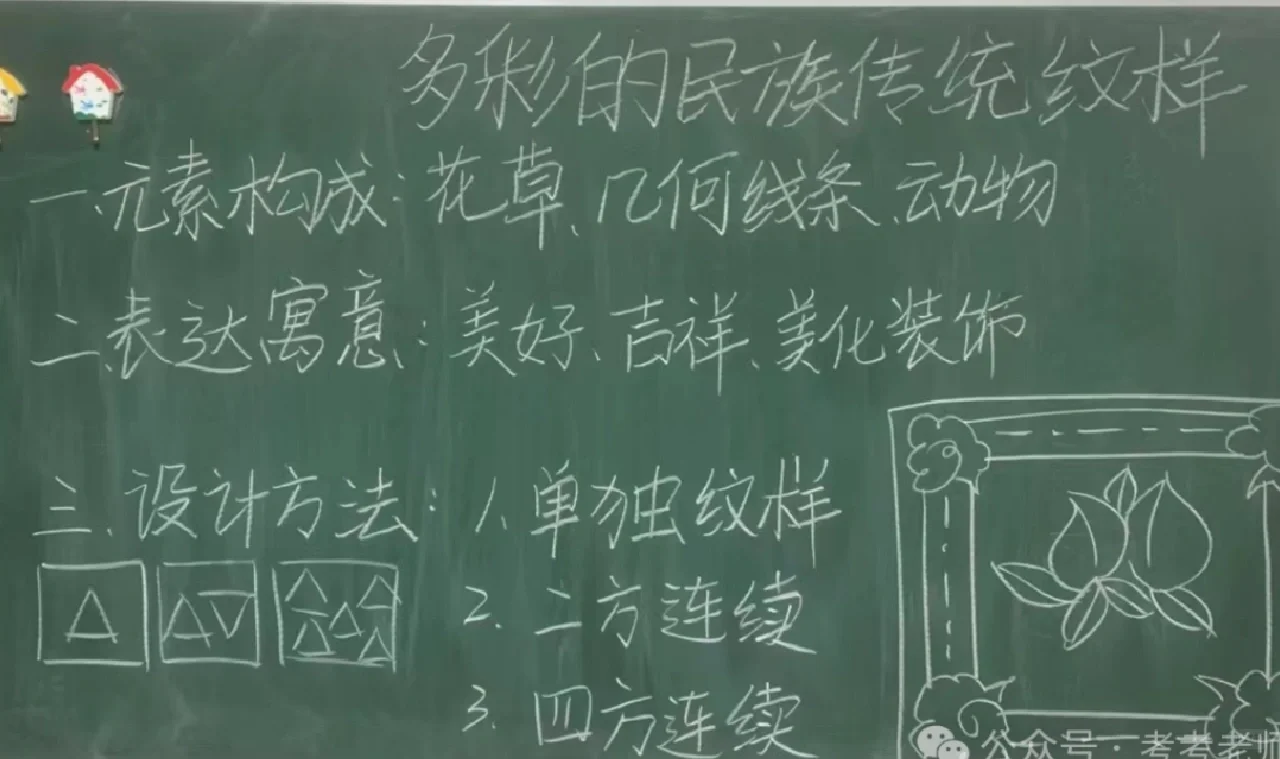 多彩的民族传统纹样
一、元素构成：花草、几何线条、动物
二、表达寓意：美好、吉祥、美化装饰
三、设计方法：1、单独纹样
2. 二方连续
3. 四方连续
公众号·考考老师